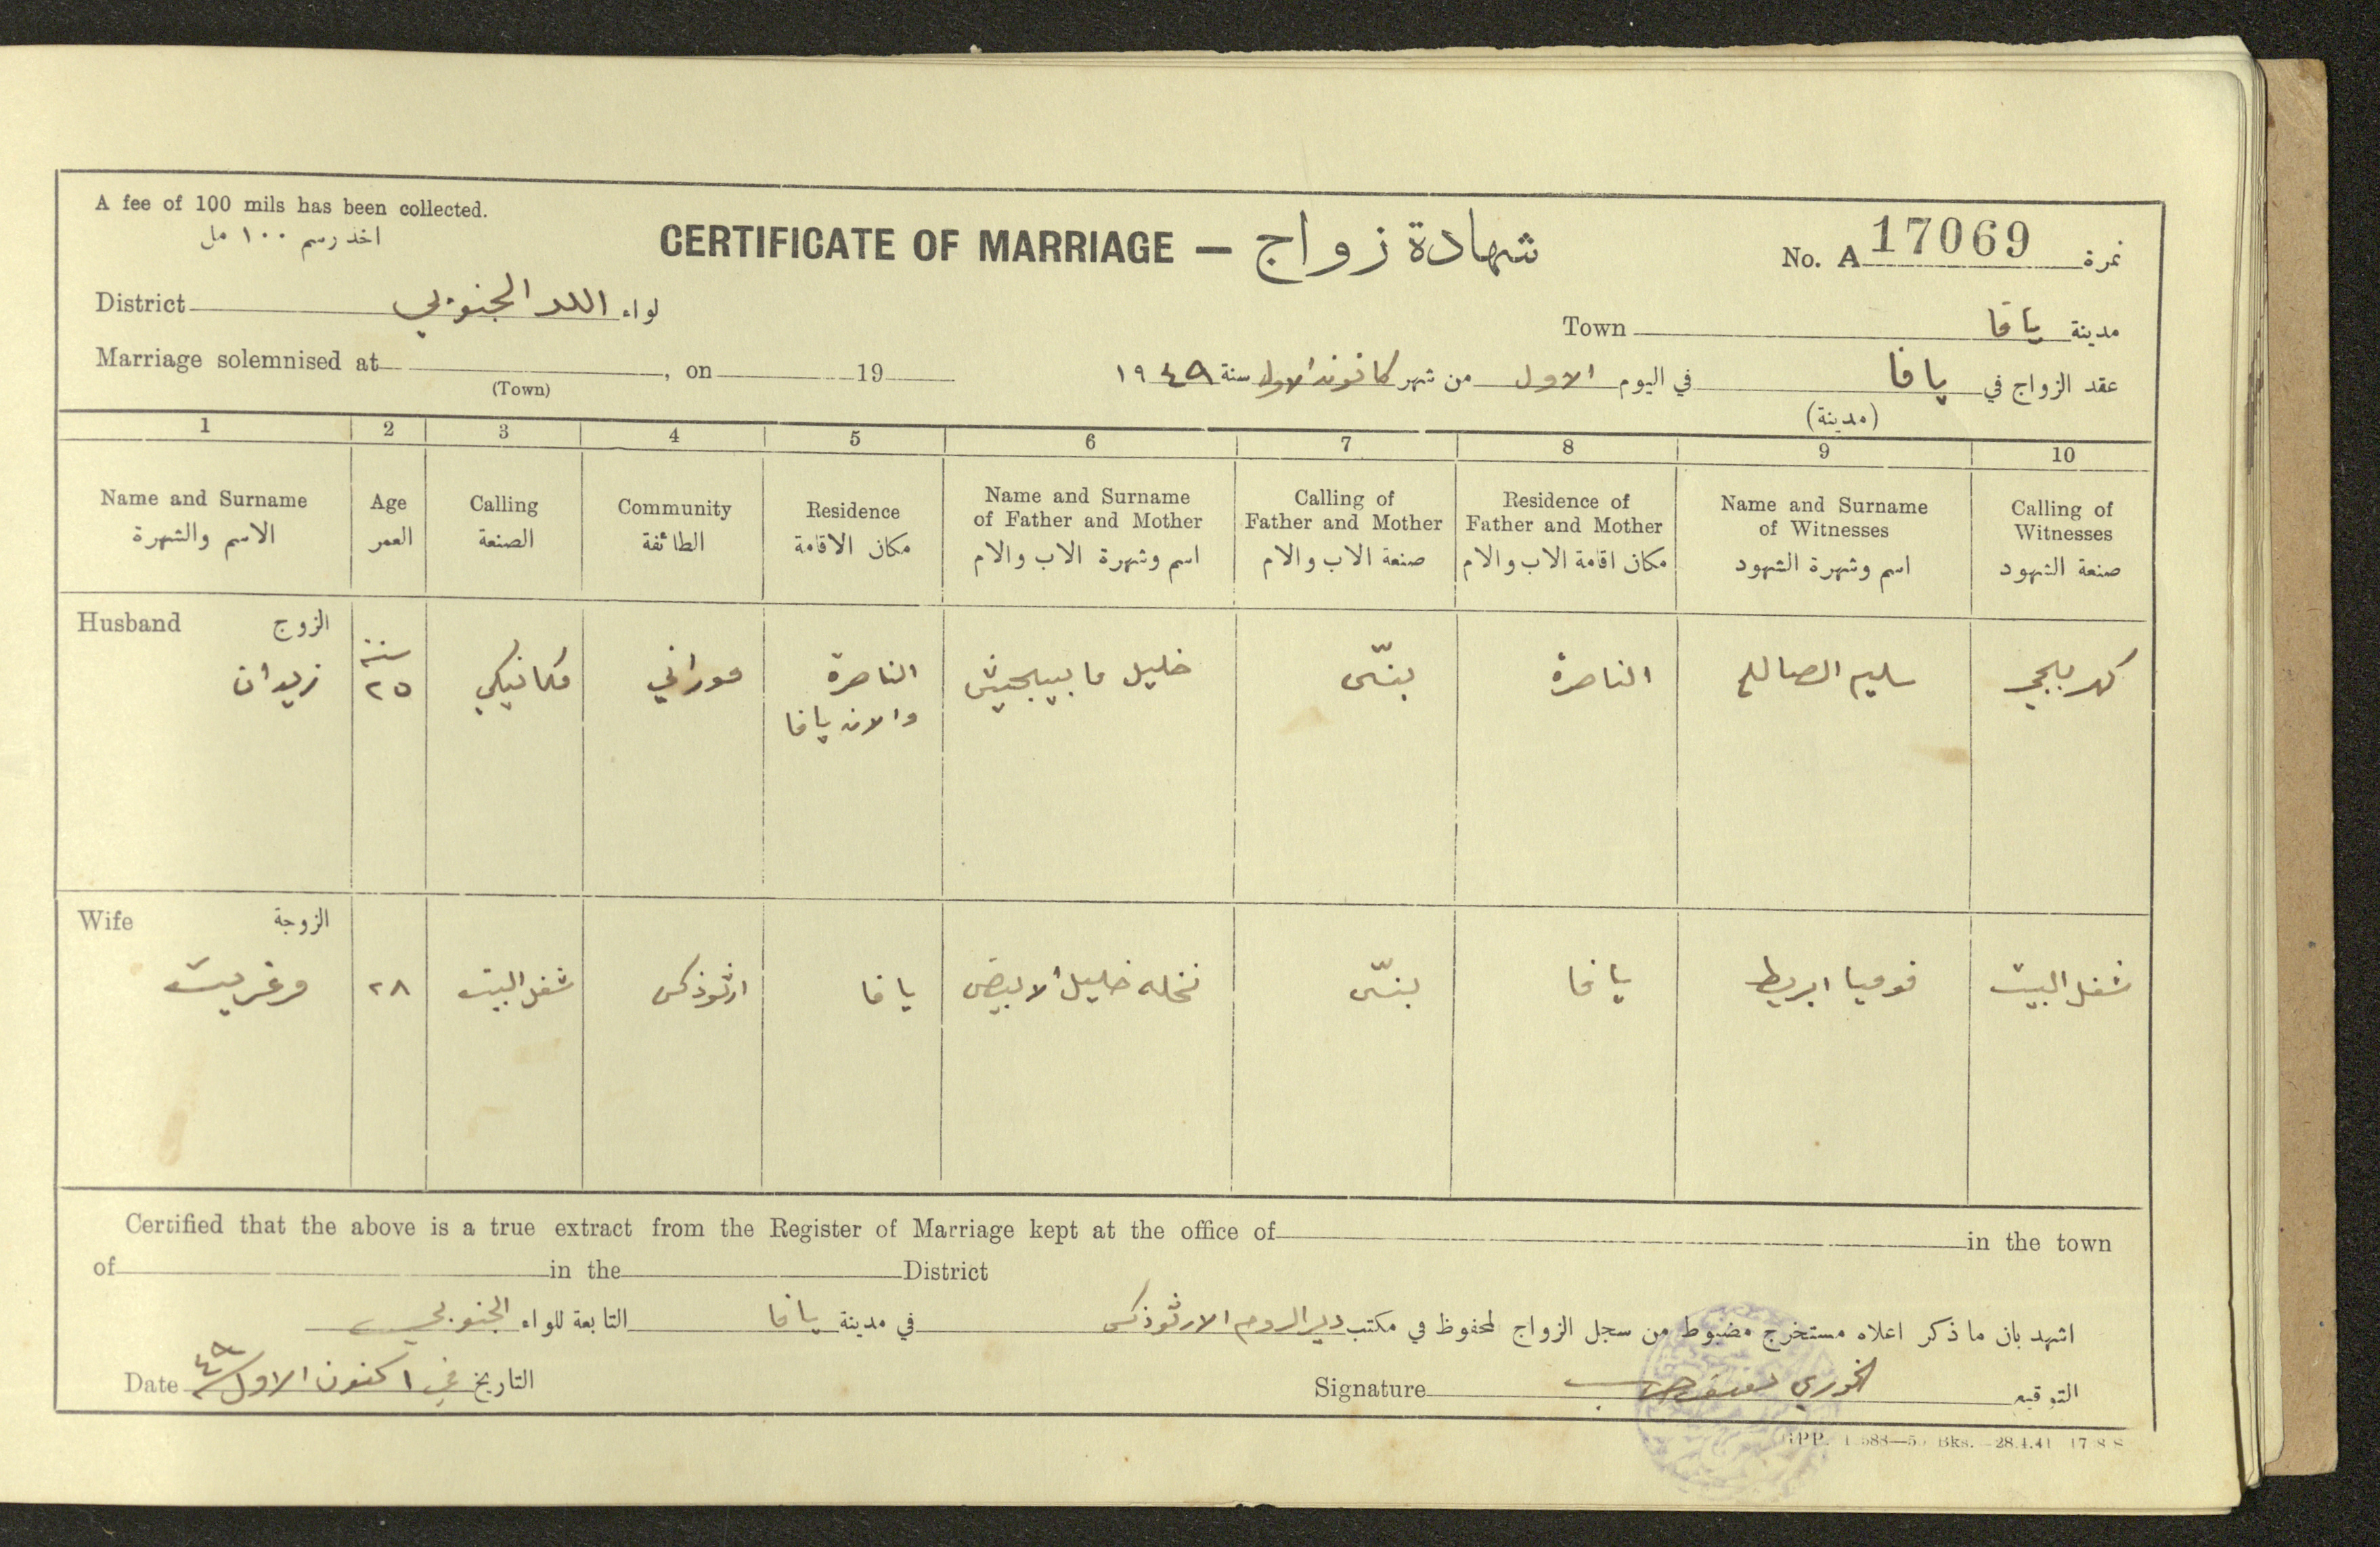 A fee of 100 mils has been collected.
اخذ رسم ١٠٠ مل
CERTIFICATE OF MARRIAGE — شهادة زواج
No. A 17069 نمرة
District اللد الجنوبي لواء
Town يافا مدينة
Marriage solemnised at , on 19
(Town)
عقد الزواج في يافا في اليوم الاول من شهر كانون الاول سنة ١٩٤٩
(مدينة)
1 2 3 4 5 6 7 8 9 10
Name and Surname
الاسم والشهرة
Age
العمر
Calling
الصنعة
Community
الطائفة
Residence
مكان الاقامة
Name and Surname
of Father and Mother
اسم وشهرة الاب والام
Calling of
Father and Mother
صنعة الاب والام
Residence of
Father and Mother
مكان اقامة الاب والام
Name and Surname
of Witnesses
اسم وشهرة الشهود
Calling of
Witnesses
صنعة الشهود
Husband الزوج
زيدان
سنة
٢٥
مكانيكي
موراني
الناصرة
والان يافا
خليل
بنّى
الناصرة
سليم الصالح
كهربجي
Wife الزوجة
مرغريت
٢٨
شغل البيت
ارثوذكس
يافا
نخله خليل الابيض
بنّى
يافا
شغل البيت
Certified that the above is a true extract from the Register of Marriage kept at the office of in the town
of in the District
اشهد بان ما ذكر اعلاه مستخرج مضبوط من سجل الزواج المحفوظ في مكتب دير الروم الارثوذكس في مدينة يافا التابعة للواء الجنوبي
Date التاريخ في ١ كنون الاول ٤٩
Signature الخوري التوقيع